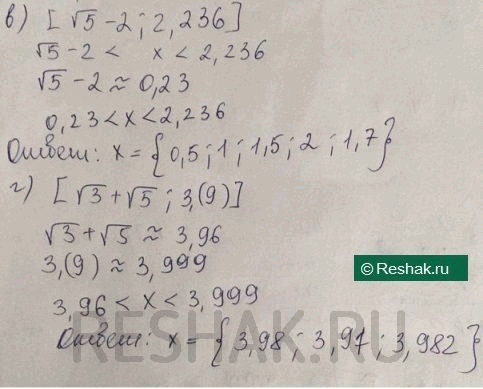 в) [√5 - 2 ; 2,236]
√5 - 2 < x < 2,236
√5 - 2 ≈ 0,23
0,23 < x < 2,236
Ответ: x = {0,5 ; 1 ; 1,5 ; 2 ; 1,7}
г) [√3 + √5 ; 3,(9)]
√3 + √5 ≈ 3,96
3,(9) ≈ 3,999
© Reshak.ru
3,96 < x < 3,999
RESHAK.RU
Ответ: x = {3,98 ; 3,97 ; 3,982}